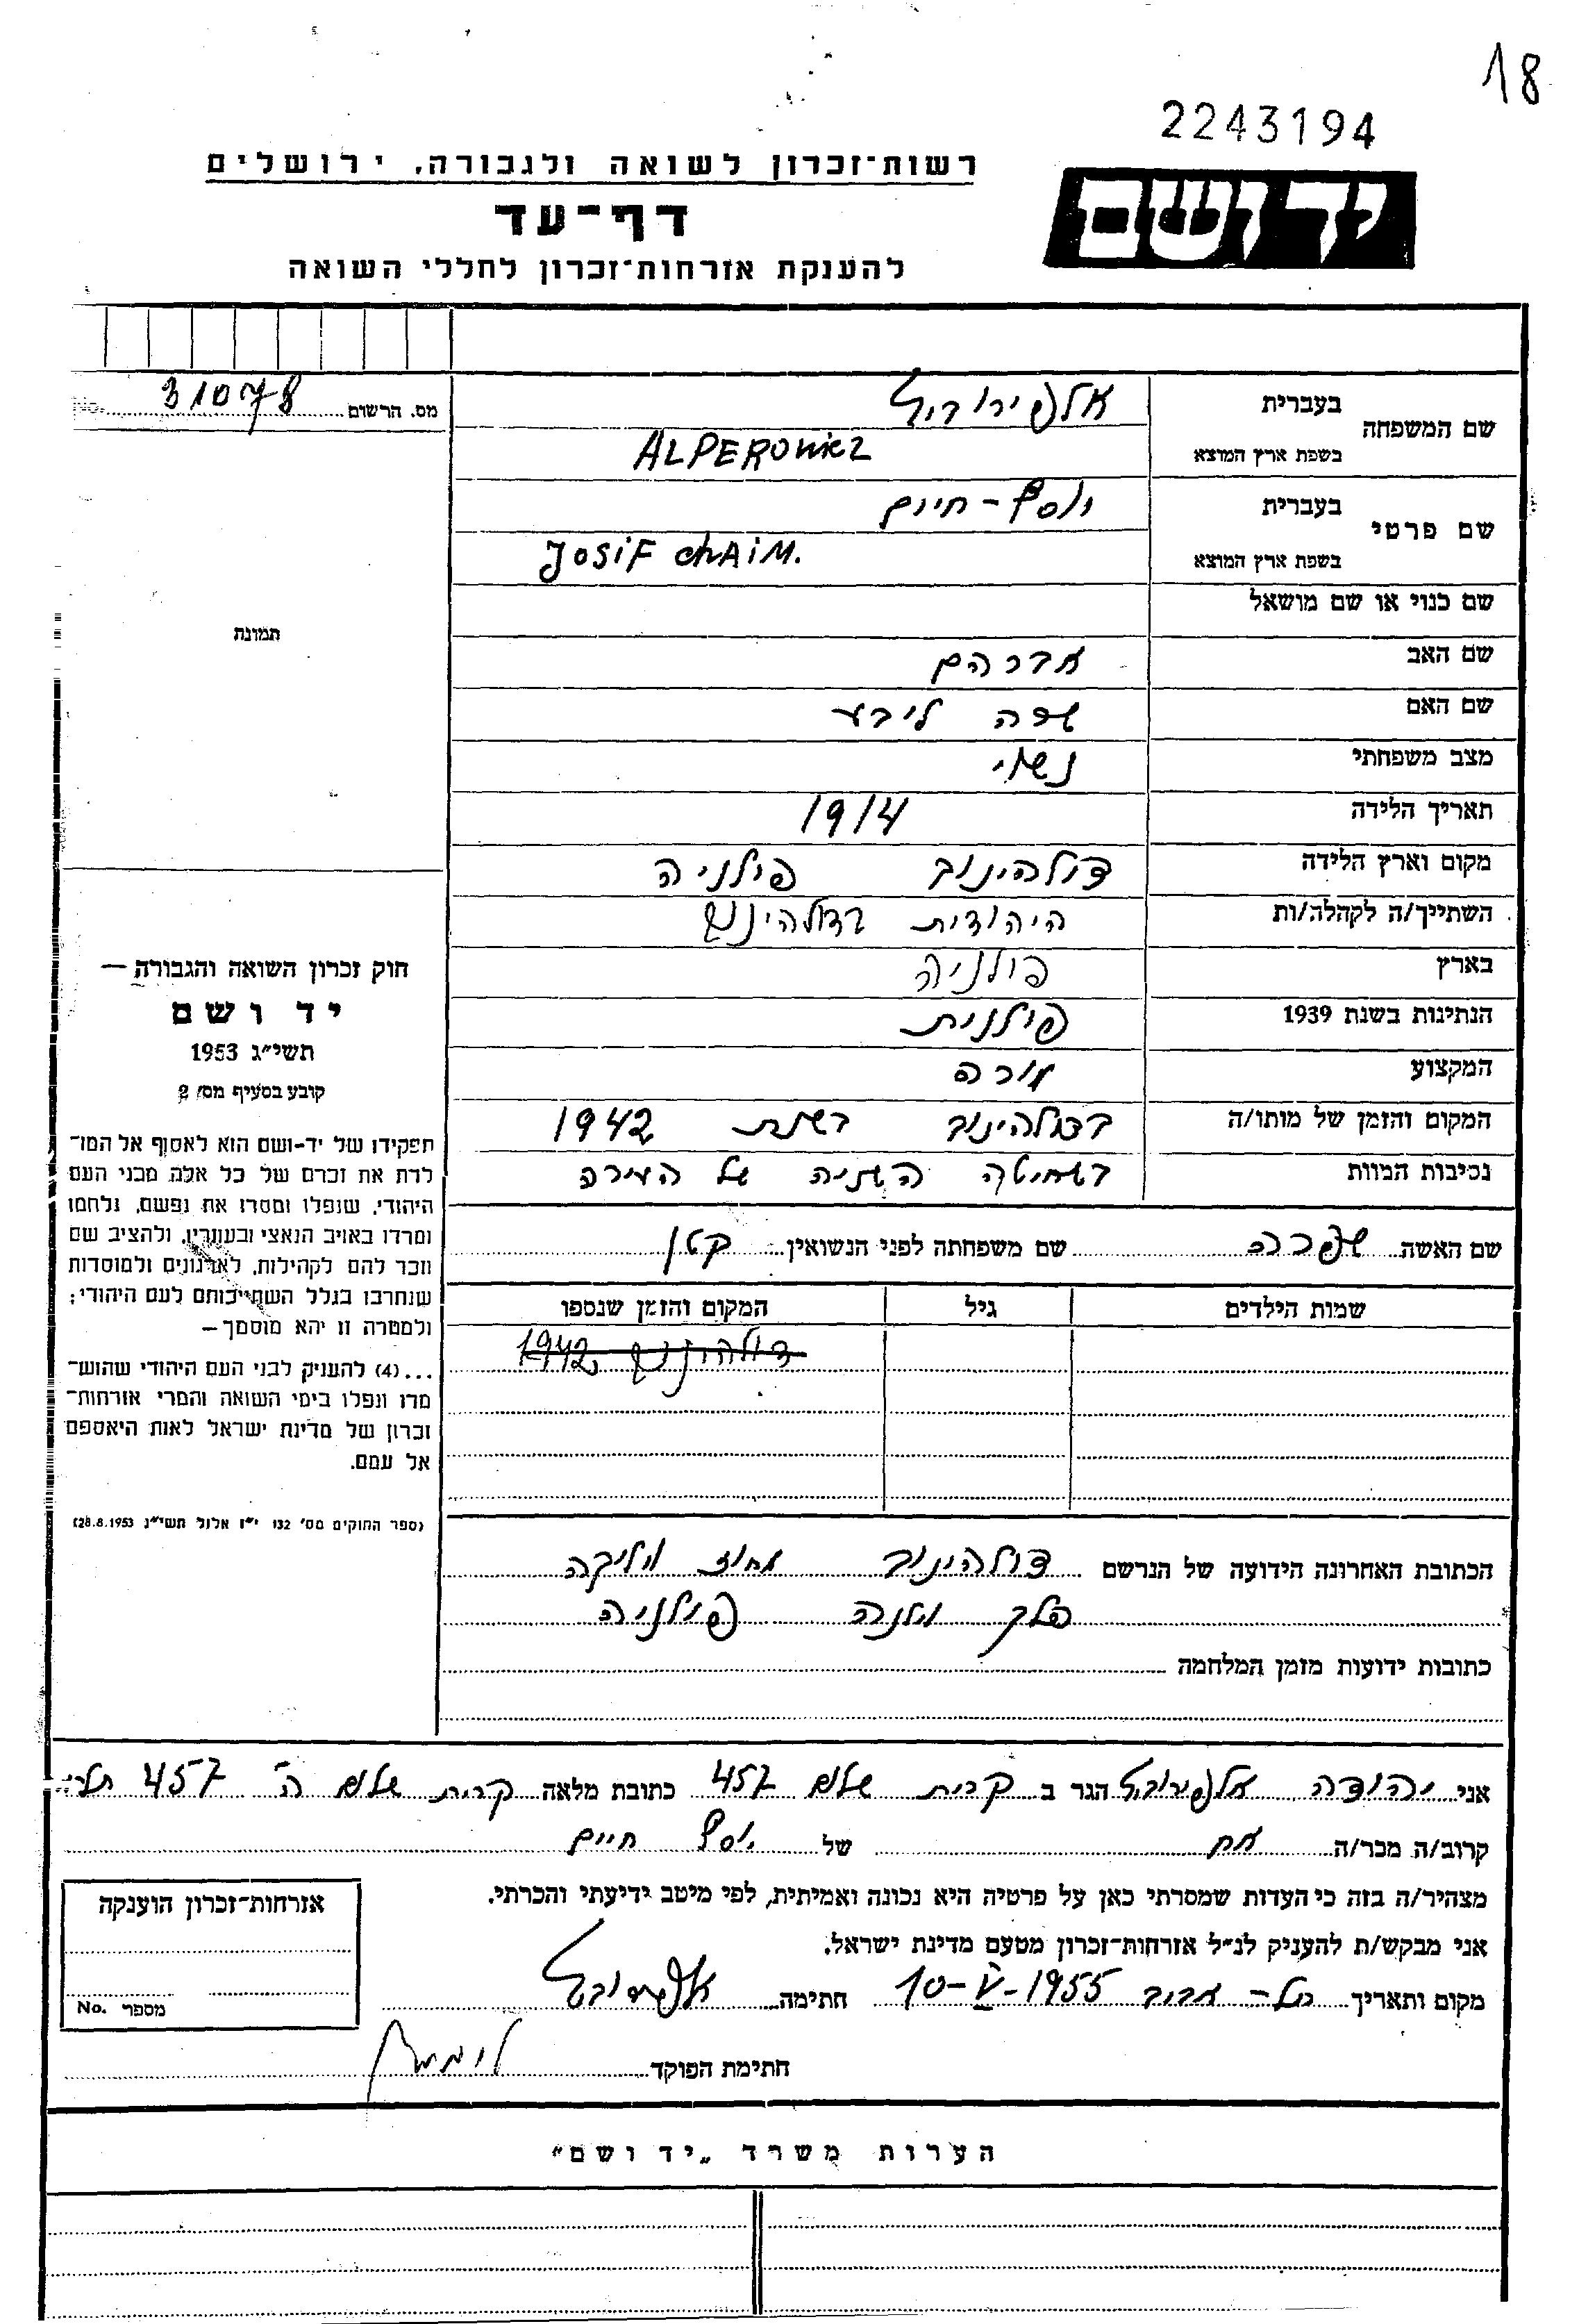 18
2243194
רשות־זכרון לשואה ולגבורה, ירושלים
יד ושם
דף־עד
להענקת אזרחות־זכרון לחללי השואה
מס. הרשום 31078 No.
שם המשפחה
בעברית אלפירוביץ
בשפת ארץ המוצא ALPEROWICZ
שם פרטי
בעברית יוסף - חיים
בשפת ארץ המוצא JOSIF CHAIM.
שם כנוי או שם מושאל
שם האב אברהם
שם האם שרה ליבע
מצב משפחתי נשוי
תאריך הלידה 1914
מקום וארץ הלידה דולהינוב פולניה
השתייך/ה לקהלה/ות היהודית בדולהינוב
בארץ פולניה
הנתינות בשנת 1939 פולנית
המקצוע מורה
המקום והזמן של מותו/ה בדולהינוב בשנת 1942
נסיבות המוות בשחיטה השניה של העירה
שם האשה שפרה שם משפחתה לפני הנשואין קטן
שמות הילדים גיל המקום והזמן שנספו
דולהינוב 1942
תמונת
חוק זכרון השואה והגבורה —
יד ושם
תשי״ג 1953
קובע בסעיף מס׳ 2
תפקידו של יד-ושם הוא לאסוף אל המו־
לדת את זכרם של כל אלה מבני העם
היהודי, שנפלו ומסרו את נפשם, נלחמו
ומרדו באויב הנאצי ובעוזריו, ולהציב שם
וזכר להם לקהילות, לארגונים ולמוסדות
שנחרבו בגלל השתייכותם לעם היהודי;
ולמטרה זו יהא מוסמך —
...(4) להעניק לבני העם היהודי שהוש־
מדו ונפלו בימי השואה והמרי אזרחות־
זכרון של מדינת ישראל לאות היאספם
אל עמם.
(ספר החוקים מס׳ 132 י״ז אלול תשי״ג 28.8.1953)
הכתובת האחרונה הידועה של הנרשם דולהינוב מחוז וילייקה
פלך וילנה פולניה
כתובות ידועות מזמן המלחמה
אני יהודה אלפירוביץ הגר ב קרית שלום 457 כתובת מלאה קרית שלום ה' 457
קרוב/ה מכר/ה אח של יוסף חיים
מצהיר/ה בזה כי העדות שמסרתי כאן על פרטיה היא נכונה ואמיתית, לפי מיטב ידיעתי והכרתי.
אני מבקש/ת להעניק לנ״ל אזרחות־זכרון מטעם מדינת ישראל.
מקום ותאריך תל-אביב 10-V-1955 חתימה אלפירוביץ
חתימת הפוקד
אזרחות־זכרון הוענקה
מספר No.
הערות משרד „יד ושם"